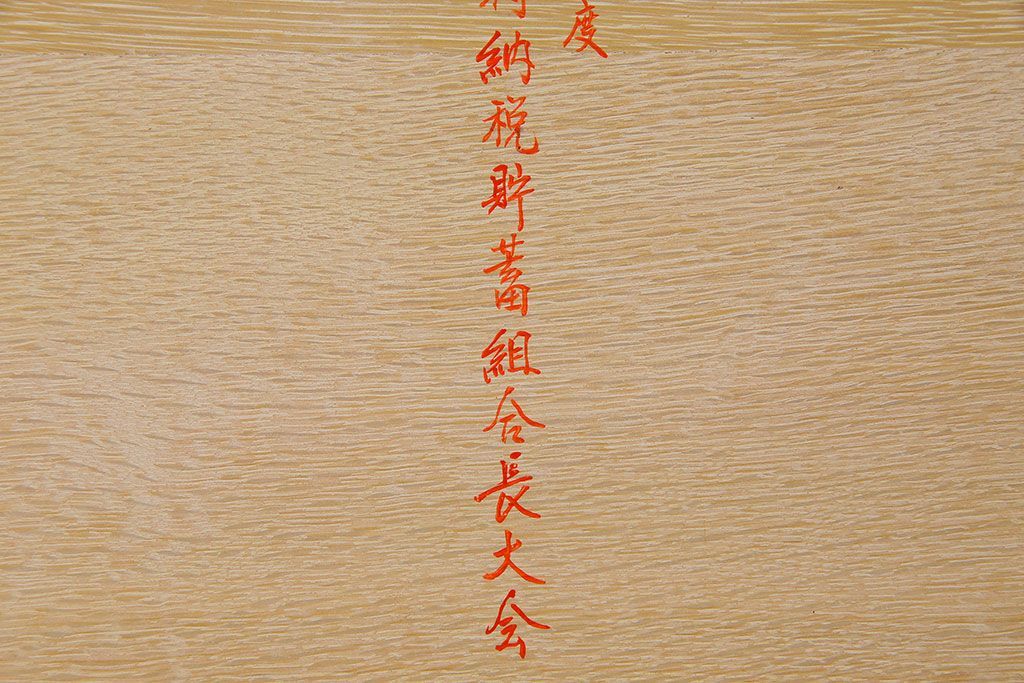 度
納税貯蓄組合長大会